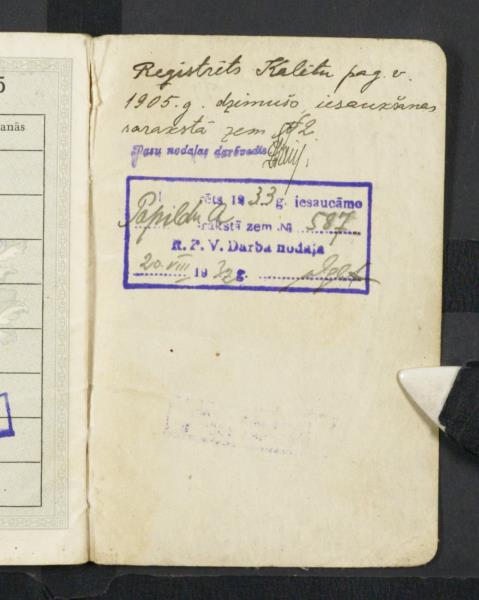 5
anās
Reģistrēts Kalētu pag. v.
1905. g. dzimušo iesaukšanas
sarakstā zem № 2.
Pasu nodaļas darbvedis
rēts 1933 g. iesaucāmo
Papildu
rakstā zem № 587
R. P. V. Darba nodaļa
20. VIII 1933 g.